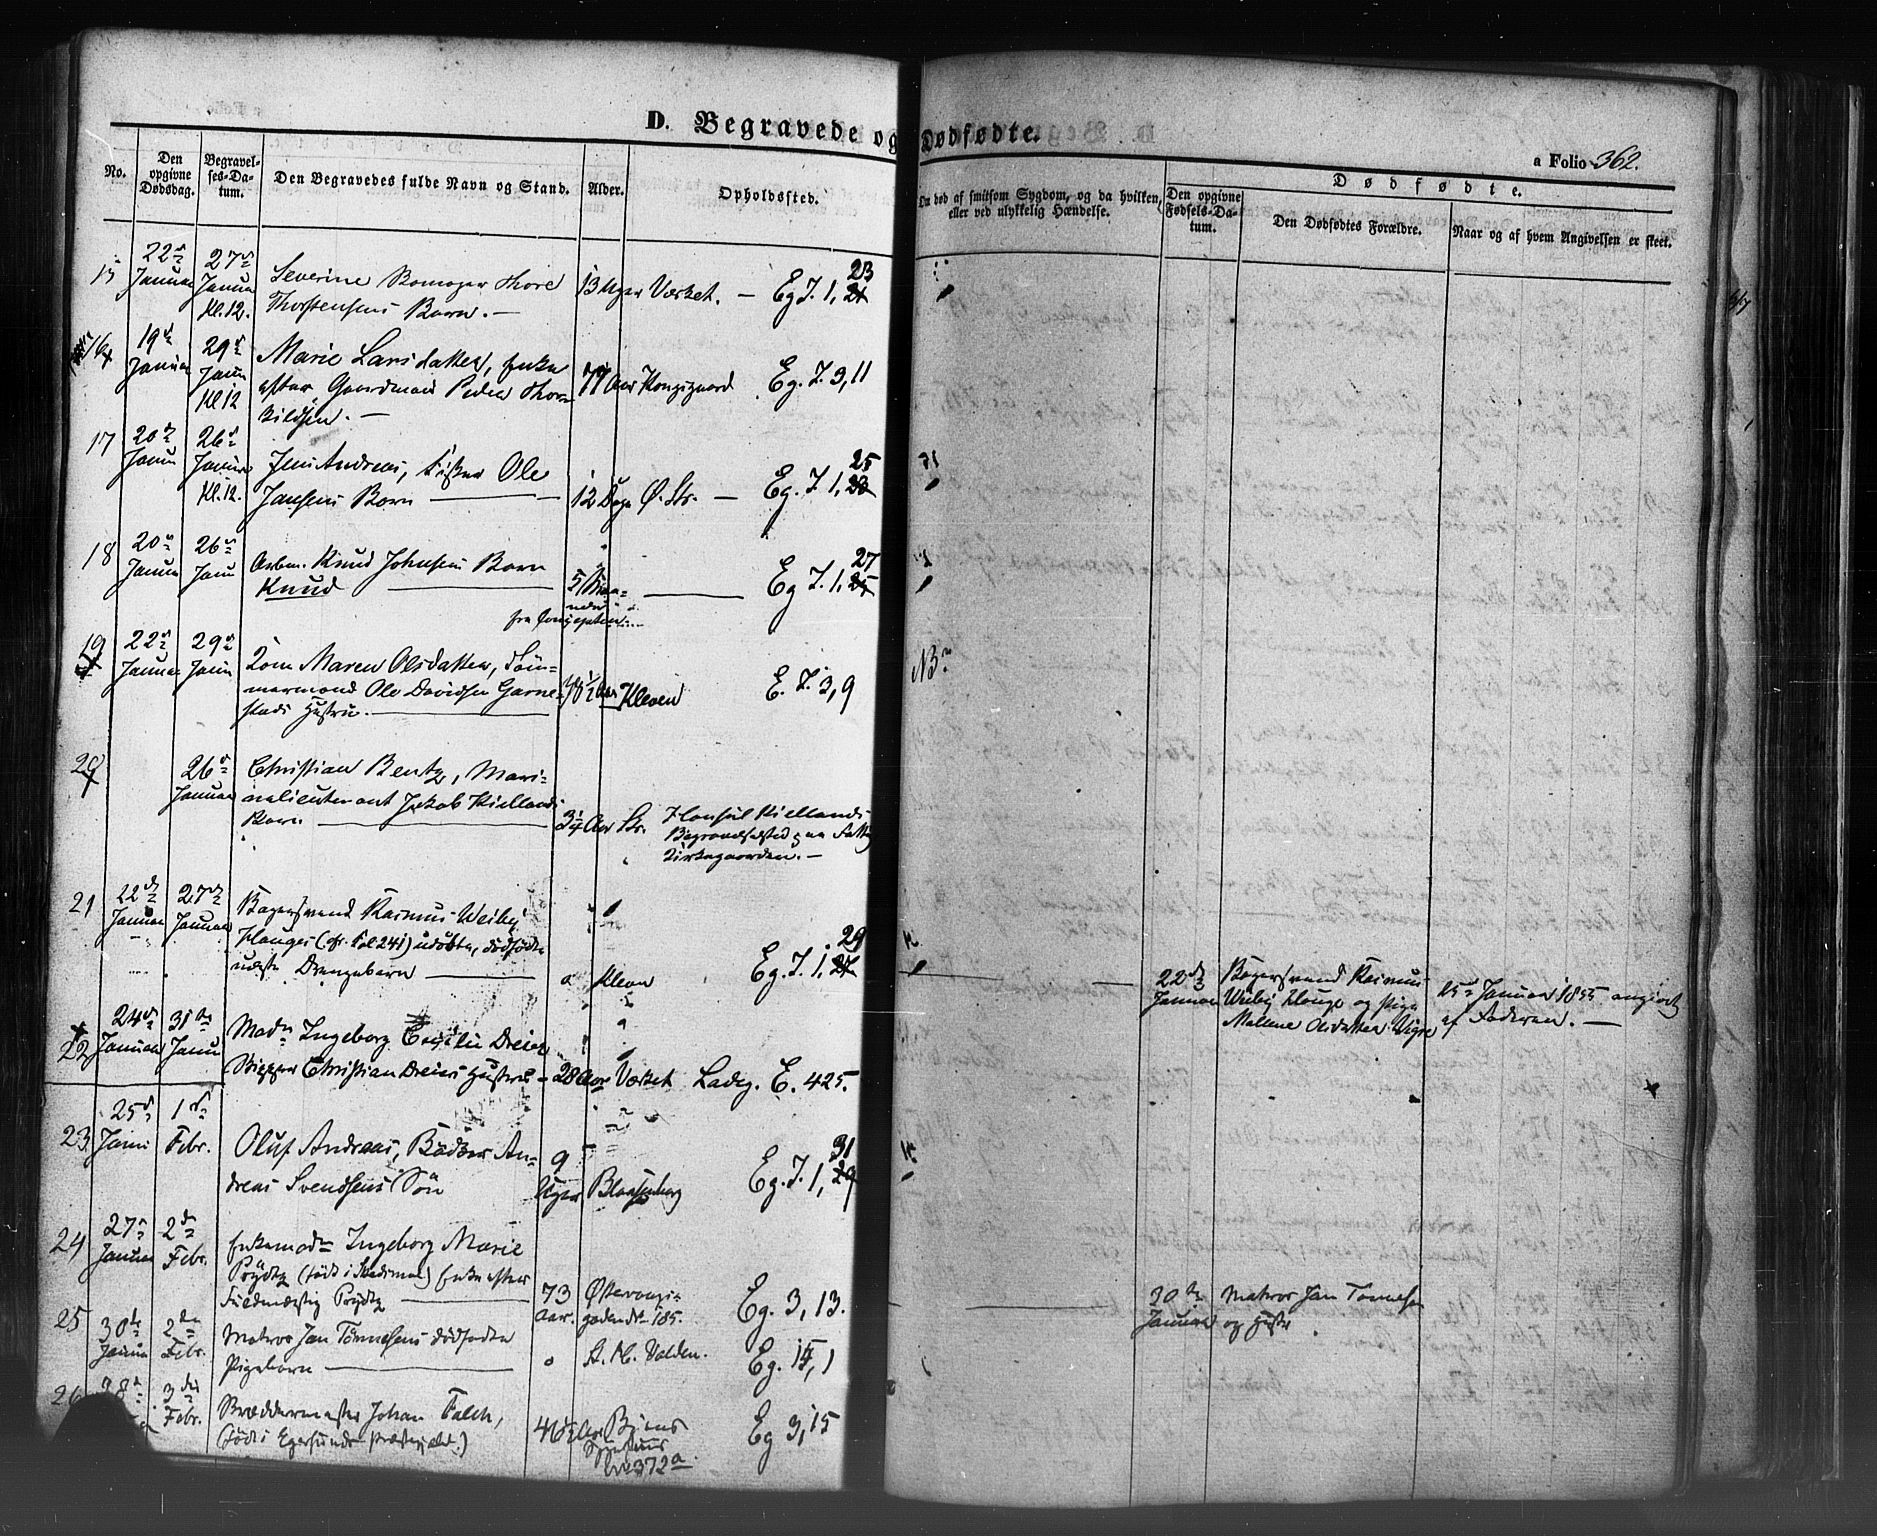 D. Begravede og Dødfødte.
a Folio 362.
No.
Den opgivne Dødsdag.
Begravelses-Datum.
Den Begravedes fulde Navn og Stand.
Alder.
Opholdssted.
Om død af smitsom Sygdom, og da hvilken, eller ved ulykkelig Hændelse.
Dødfødte.
Den opgivne Fødsels-Datum.
Den Dødfødtes Forældre.
Naar og af hvem Angivelsen er skeet.
15 22 Januar 27 Januar Kl. 12. Severine Thore
Thorstensens Barn. — 13 Uger Værket. — Eg. J. 1, 23
16 19 Januar 29 Janu Kl 12 Marie Larsdatter, Enke
efter Gaardmand Peder Thor-
kildsen. — Aar Kongsgaard Eg. J. 3, 11
17 20 Janu 26 Januar Kl. 12. Jens Andreas, Fisker Ole
Jansens Barn 12 Dage Ø. Str. — Eg. J. 1, 25
18 20 Januar 26 Janu Arbm. Knud Johnsens Barn
Knud 5 Maa-
neder Eg J. 1, 27
19 22 Januar 29 Janu Kone Maren Olsdatter, Töm-
mermand Ole Davidsen Garne-
stads Hustru. Aar Kleven E. J. 3, 9
NB
20 26 Januar Christian Bentz, Mari-
nelieutenant Jakob Kiellands
Barn 3/4 Aar Str. Konsul Kiellands
Begravelsested paa Fattig
Kirkegaarden. —
21 22 Januar 27 Januar Bagersvend Rasmus Weiby
Hauges (cfr. Fol 241) udöbte, dödfödte
uægte Drengebarn o Kleven Eg. J. 1, 29
22 Januar Bagersvend Rasmus
Weiby Hauge og Pige
Mallene Olsdatter Vigre
15 Januar 1855 angivet
af Faderen. —
22 24 Januar 31 Janu Mad. Ingeborg Dreier
Skipper Christian Dreiers Hustru 28 Aar Værket Ladeg. E. 425.
23 25 Janu 1 Febr. Oluf Andreas, Bödker An-
dreas Svendsens Sön 9
Uger Blaasenborg Eg. J. 1, 31
24 27 Januar 2 Febr. Enkemad Ingeborg Marie
Prydtz (födt i Stedsmoe) Enke efter
Fuldmægtig Prydtz 73
Aar. Östervaagsgaden No 185. Eg. 3, 13.
25 30 Janua 2 Febr. Matros Jan Tönnesens dödfödte
Pigebarn o St. H. Volden. Eg. 1
30 Januar Matros Jan Tönnesen
og Hustr
26 28 3 Febr. Bræddermester Johan Falch,
(födt i Egersunds Præstegjeld.) 46 1/2 Aar
No 372a. Eg 3, 15